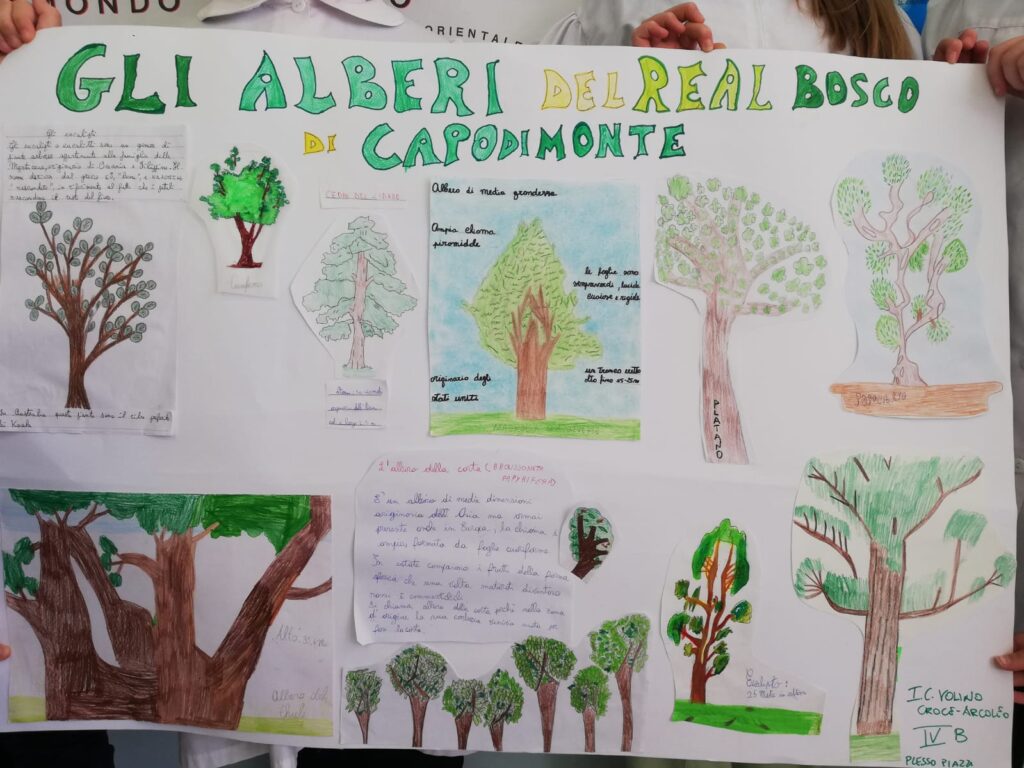 MONDO
ORIENTALE
GLI ALBERI DEL REAL BOSCO
DI CAPODIMONTE
Gli eucalipti
Gli eucalipti o eucalitti sono un genere di
piante arboree appartenente alla famiglia delle
originario di Oceania e Filippine. Il
nome deriva dal greco "bene", e
"nascondere", in riferimento al fatto che i petali
nascondono il resto del fiore.
In Australia queste piante sono il cibo preferito
Koala
Canfora
CEDRO DEL LIBANO
Albero di media grandezza
Ampia chioma
piramidale
le foglie sono
sempreverdi, lucide
cuoiose e rigide
originario degli
stati uniti
un tronco eretto
alto fino 25
PLATANO
L'albero della carta (BROUSSONETIA
PAPYRIFERA)
E' un albero di medie dimensioni
originario dell'Asia ma ormai
presente anche in Europa, la chioma è
ampia, formata da foglie
In estate compaiono i frutti dalla forma
sferica che una volta maturati diventano
rossi e commestibili.
Si chiama albero della carta perché nella zona
d'origine la sua corteccia veniva usata per
fare la carta.
Albero del
Eucalipto:
25 Metri in altezza
I.C. VOLINO
CROCE-ARCOLEO
IV B
PLESSO PIAZZA